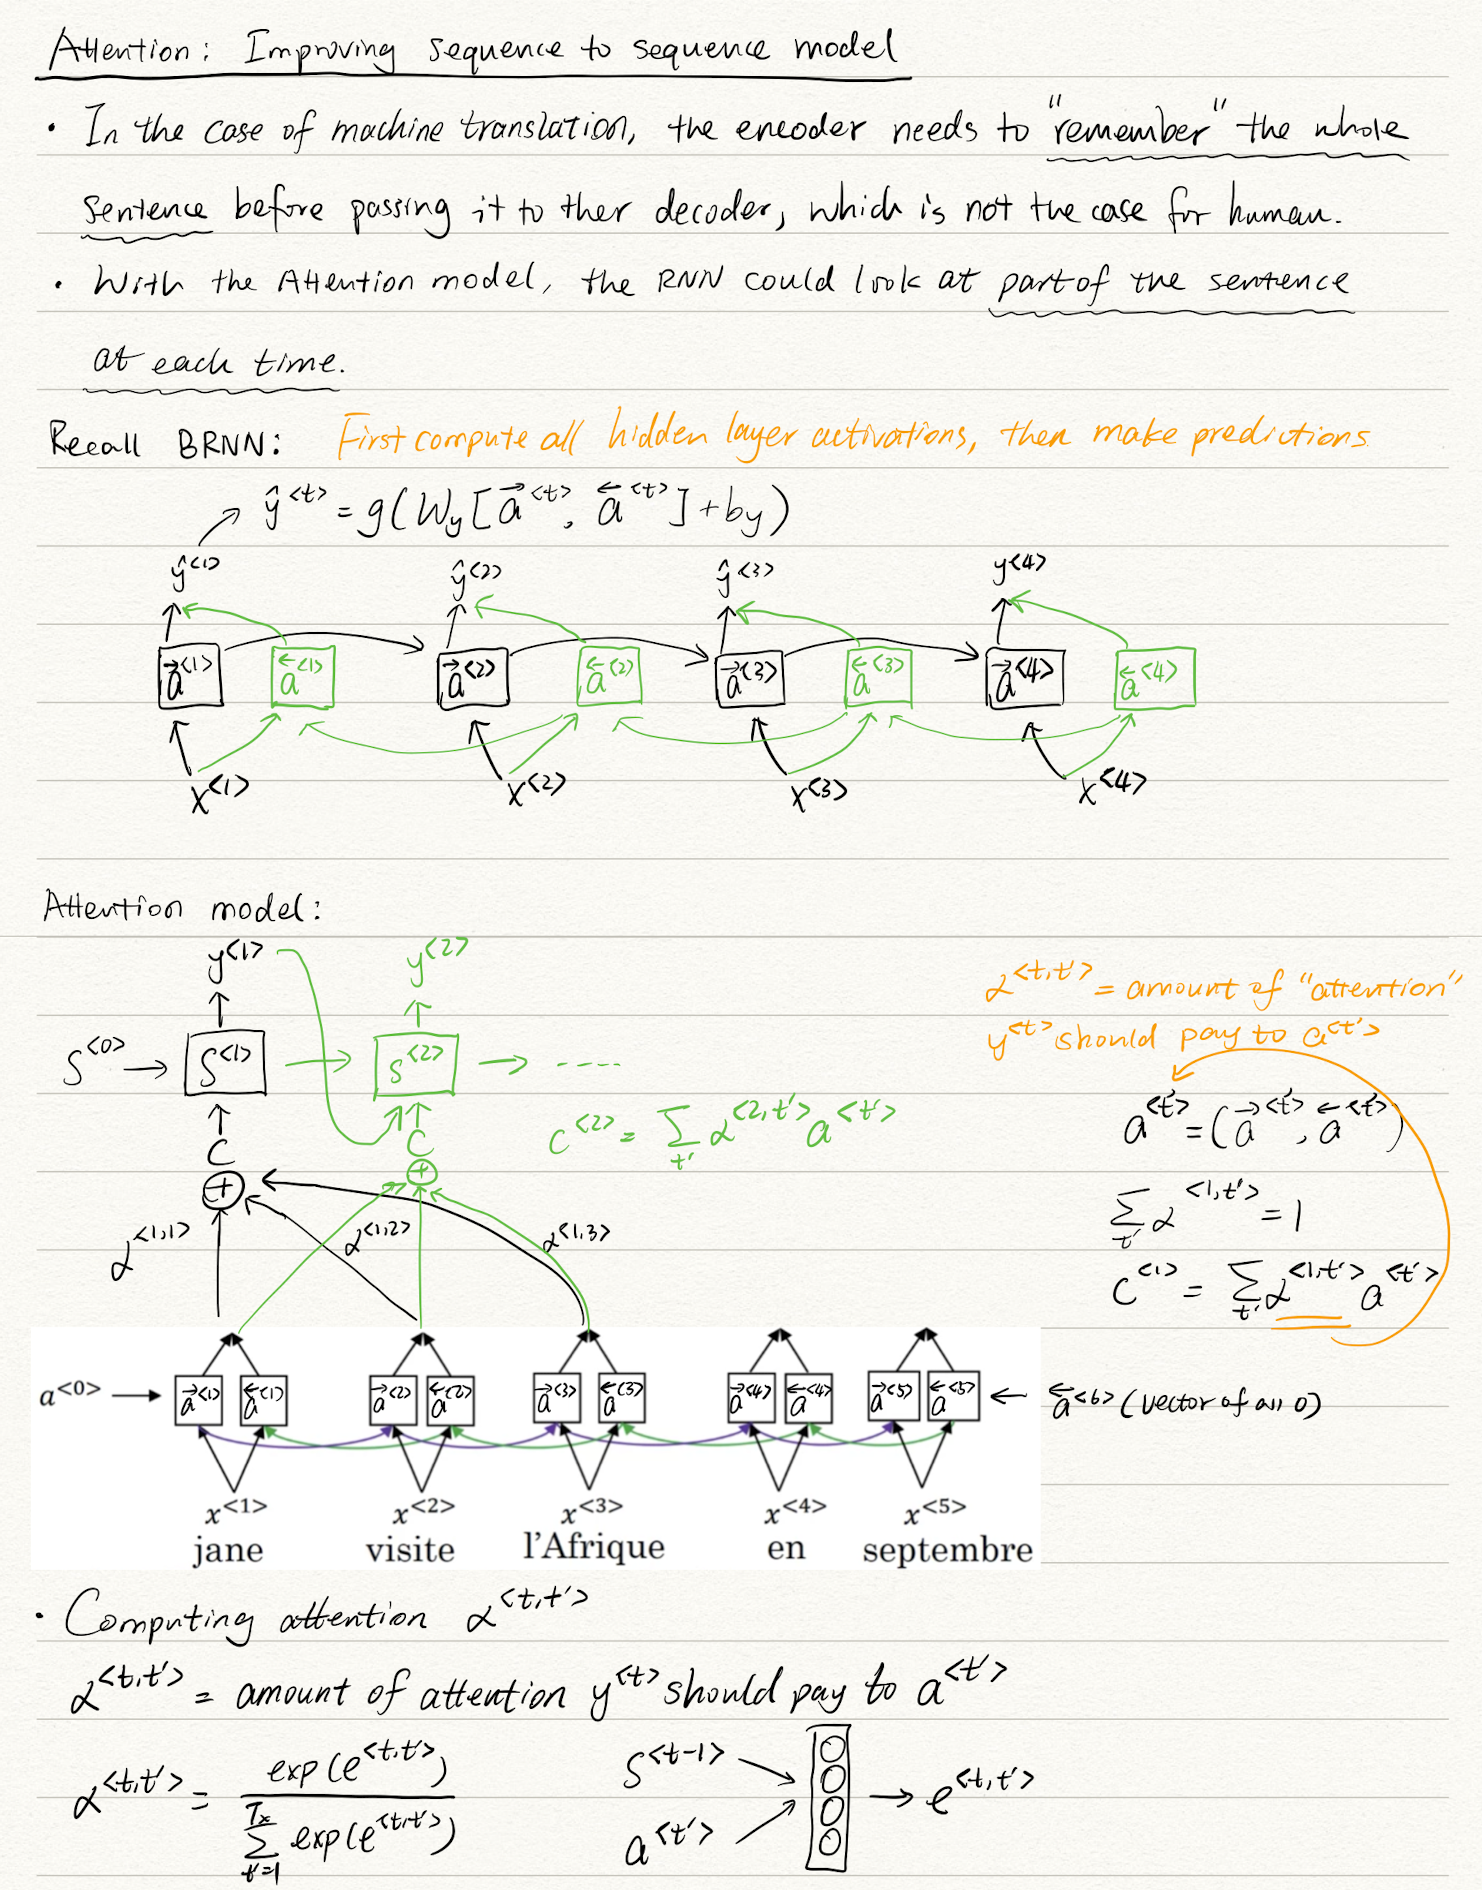 Attention: Improving sequence to sequence model
• In the case of machine translation, the encoder needs to "remember" the whole
sentence before passing it to ther decoder, which is not the case for human.
• With the Attention model, the RNN could look at part of the sentence
at each time.
Recall BRNN: First compute all hidden layer activations, then make predictions
ŷ^<t> = g(Wy[a→^<t>, a←^<t>] + by)
ŷ^<1> ŷ^<2> ŷ^<3> y^<4>
a→^<1> a←^<1> a→^<2> a←^<2> a→^<3> a←^<3> a→^<4> a←^<4>
x^<1> x^<2> x^<3> x^<4>
Attention model:
y^<1> y^<2>
α^<t,t'> = amount of "attention"
y^<t> should pay to a^<t'>
S^<0> → S^<1> → S^<2> → ----
a^<t'> = (a→^<t'>, a←^<t'>)
C C
C^<2> = Σ_t' α^<2,t'> a^<t'>
+ +
Σ_t' α^<1,t'> = 1
α^<1,1> α^<1,2> α^<1,3>
C^<1> = Σ_t' α^<1,t'> a^<t'>
a^<0> → a→^<1> a←^<1> a→^<2> a←^<2> a→^<3> a←^<3> a→^<4> a←^<4> a→^<5> a←^<5> ← a←^<6> (vector of all 0)
x^<1> x^<2> x^<3> x^<4> x^<5>
jane visite l'Afrique en septembre
• Computing attention α^<t,t'>
α^<t,t'> = amount of attention y^<t> should pay to a^<t'>
α^<t,t'> = exp(e^<t,t'>) / Σ_{t'=1}^{Tx} exp(e^<t,t'>)
S^<t-1>
a^<t'>
→ e^<t,t'>